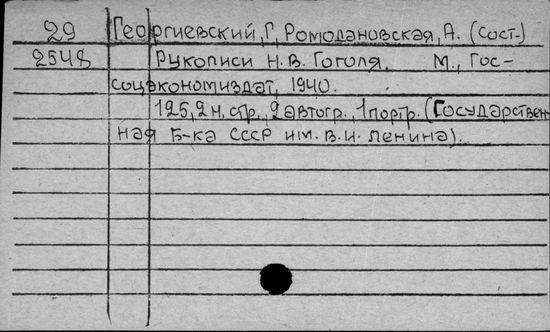 29 Георгиевский, Г, Ромодановская, А. (Сост.)
2548 Рукописи Н.В. Гоголя. М., Гос-
соцэкономиздат, 1940.
125,2 н. стр., 2 автогр., 1 портр. (Государствен-
ная Б-ка СССР им. В.И. Ленина).